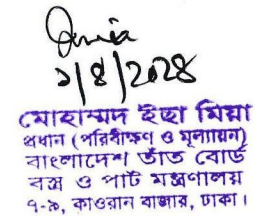 ১/৪/২০২৪
মোহাম্মদ ইছা মিয়া
প্রধান (পরিবীক্ষণ ও মূল্যায়ন)
বাংলাদেশ তাঁত বোর্ড
বস্ত্র ও পাট মন্ত্রণালয়
৭-৯, কাওরান বাজার, ঢাকা।